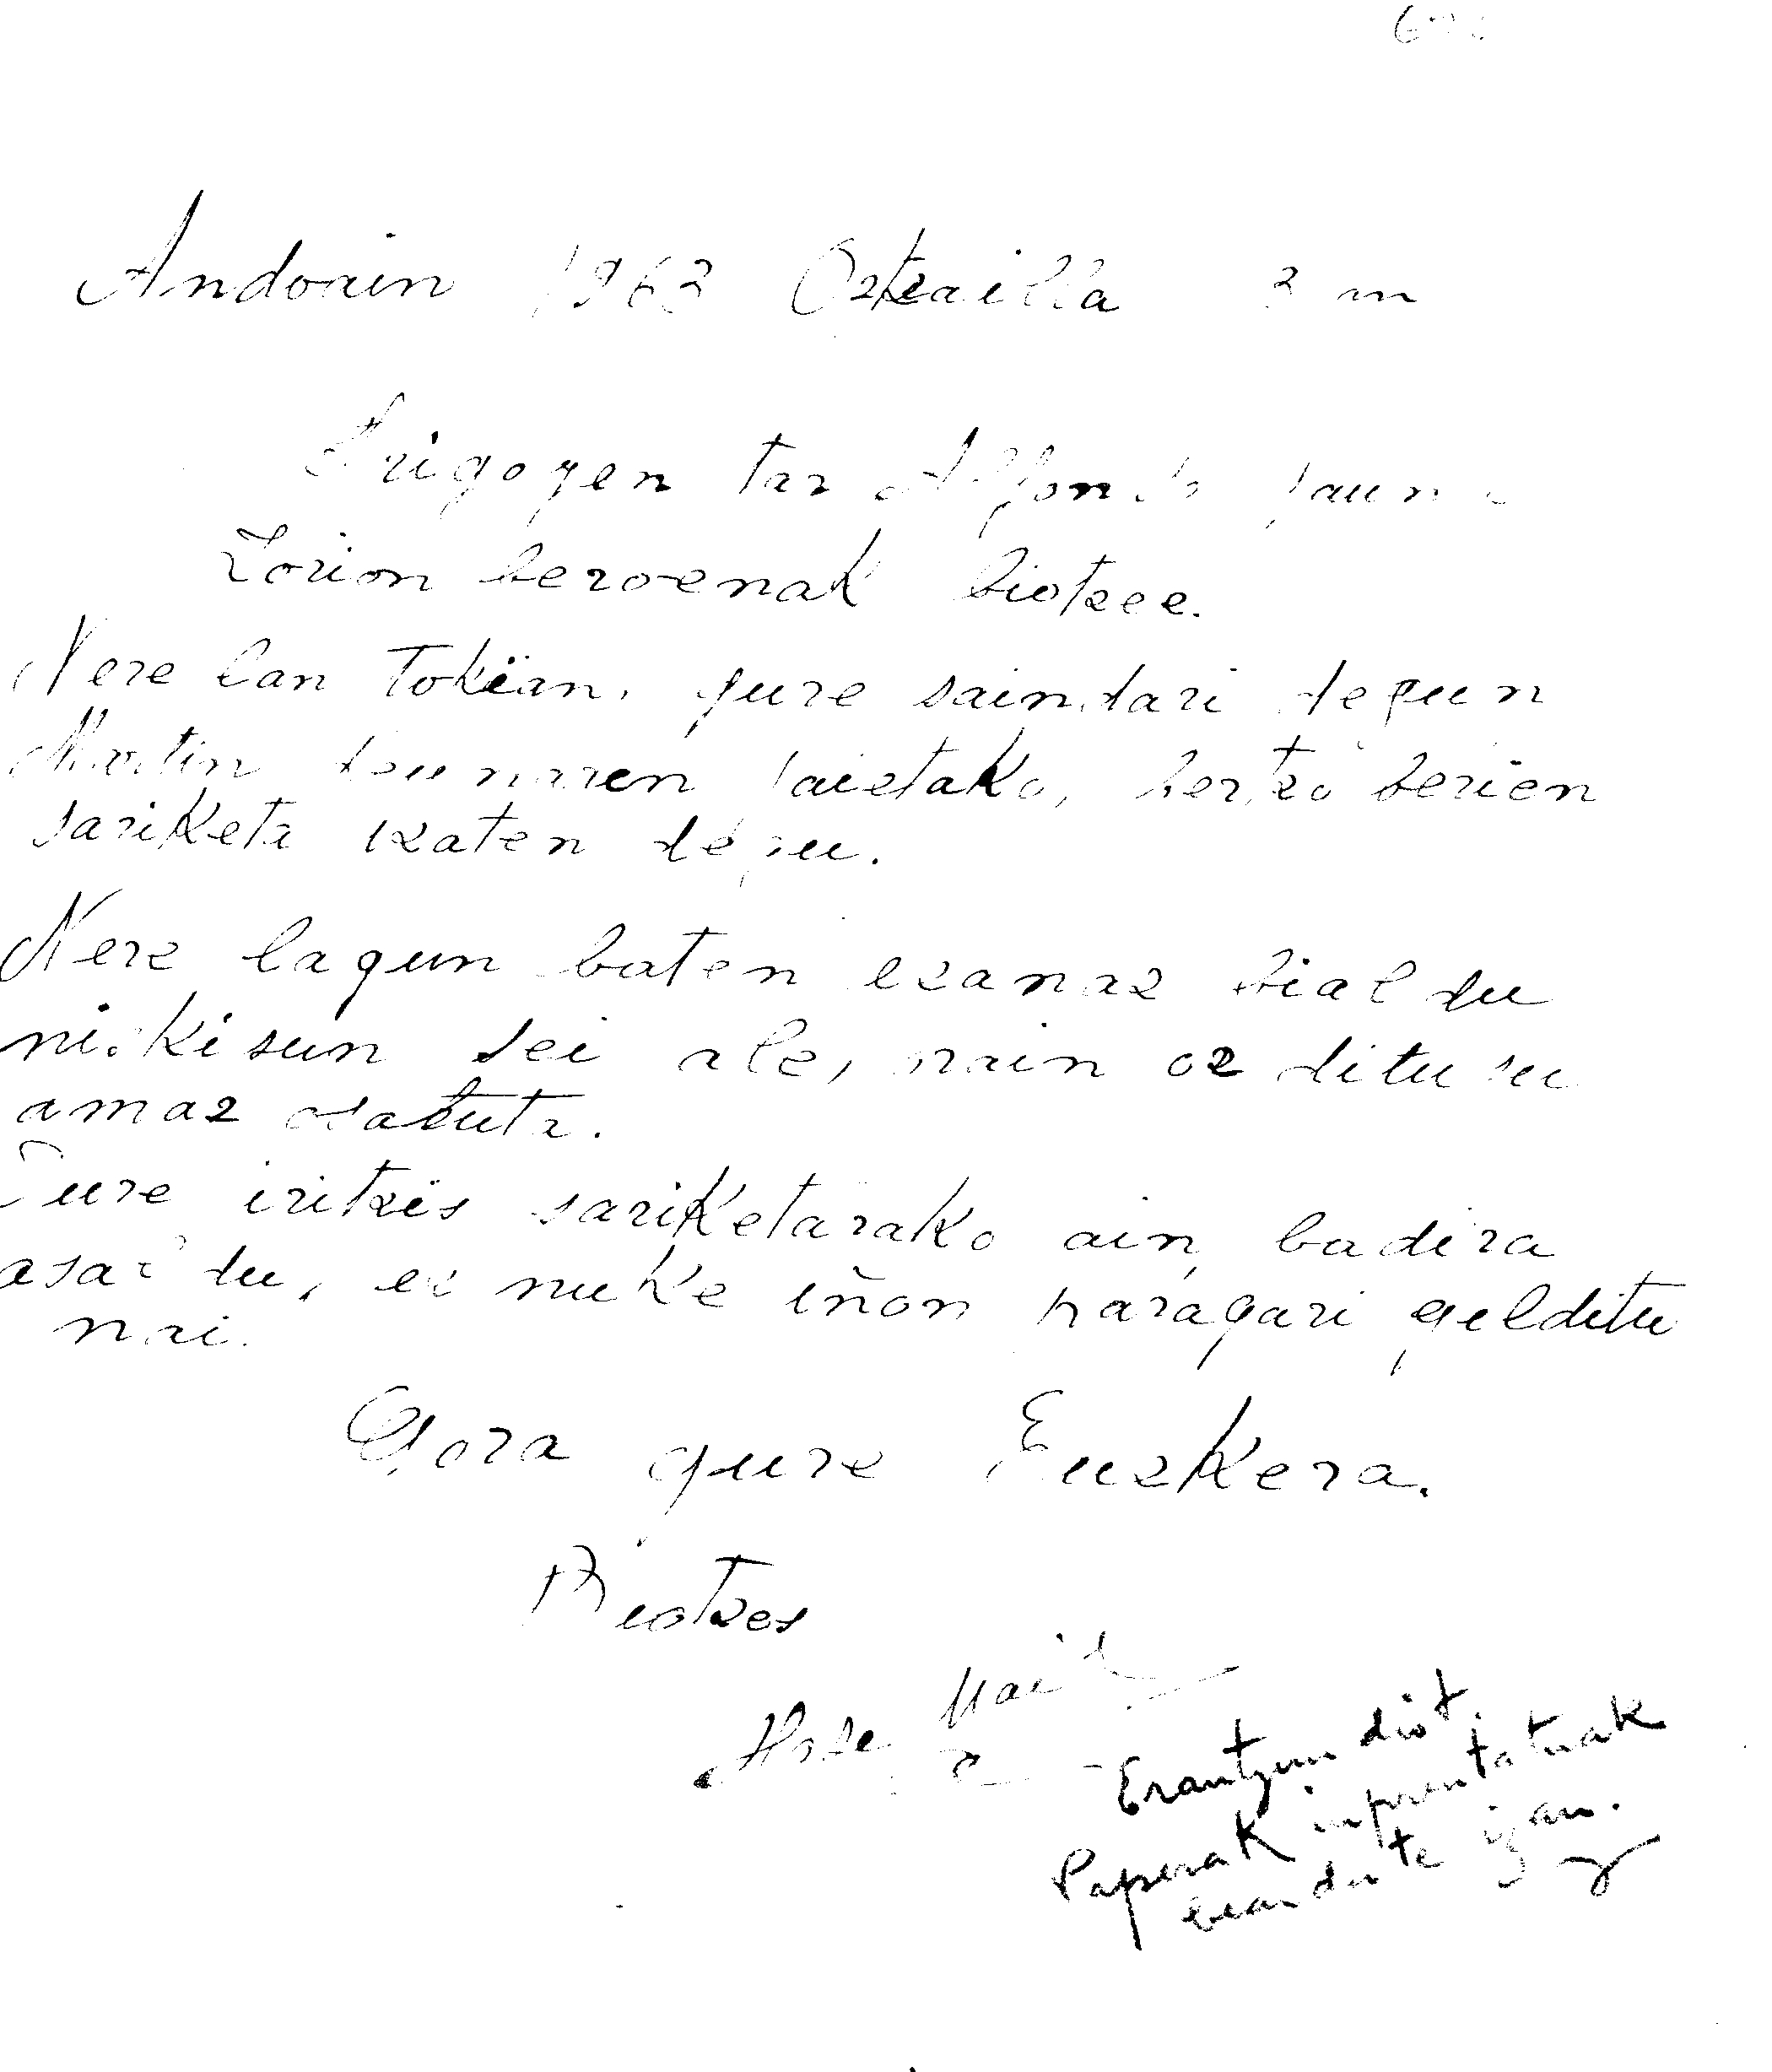 Andoain 1963 Oztailla 3 an
Irigoyen tar Alfonso Jauna
Zorion beroenak biotzez.
Nere lan Tokian, gure saindari degun
Martin Deunaren jaietako, bertso berien
sariketa izaten degu.
Nere lagun baten esanaz bial du
nizkisun sei ale, nain oz ditusu
amaz osatuta.
Zure iritzis sariketarako ain badira
asaldu, ez nuke iñon naragari gelditu
nai.
Gora gure Euzkera.
Biotzes
Jose
Erantzun diot.
Paperak inprentatuak
bear dute izan.